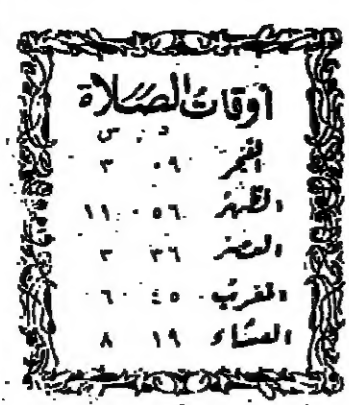 أوقات الصلاة
د . س
الفجر ٠٩ ٣
الظهر ٥٦ ١١
العصر ٣٦ ٣
المغرب ٤٥ ٦
العشاء ١٩ ٨